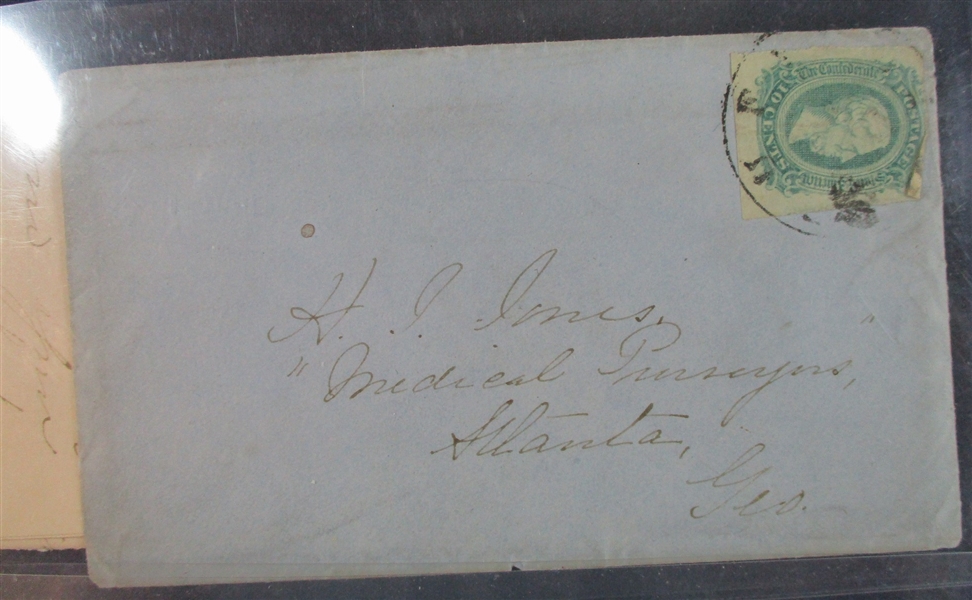 The Confederate
POSTAGE
10 CENTS
H. I. Jones.
"Medical Purveyors,"
Atlanta,
Geo.